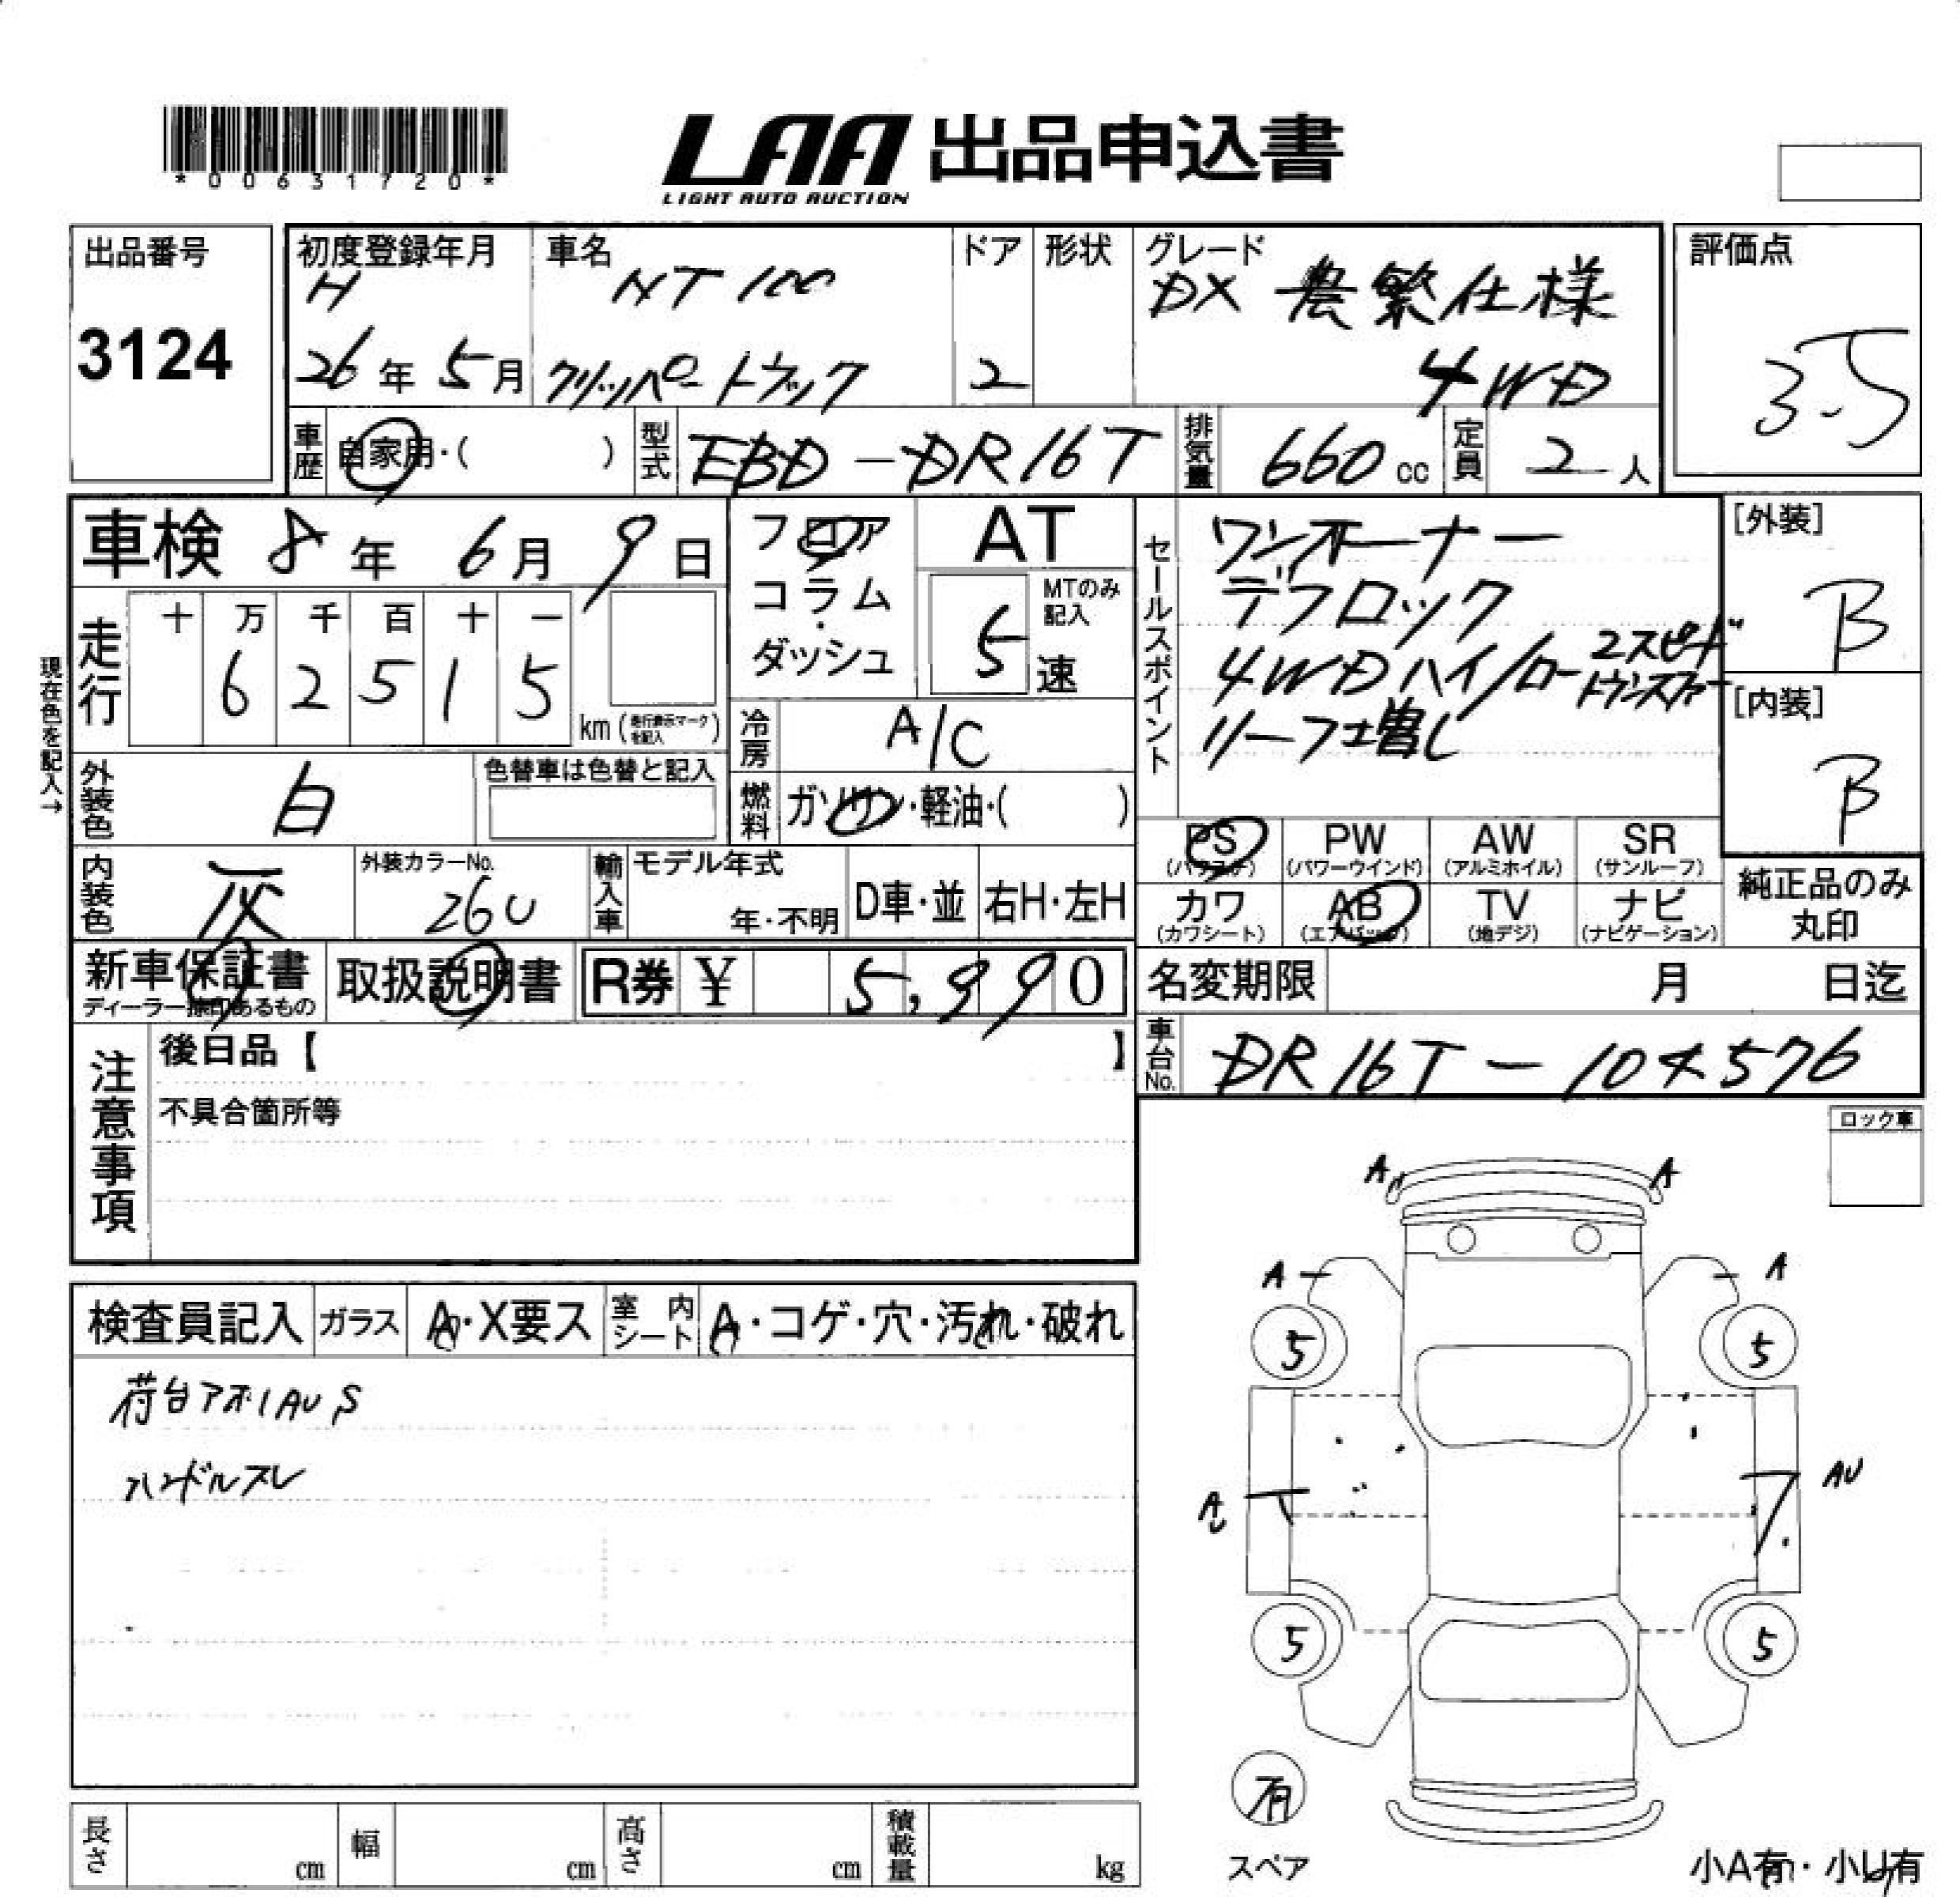 *00631720*
LAA 出品申込書
LIGHT AUTO AUCTION
出品番号
3124
初度登録年月
H
26年 5月
車名
NT100
クリッパートラック
ドア
2
形状
グレード
DX 農繁仕様
4WD
評価点
3.5
車歴
自家用・( )
型式
EBD-DR16T
排気量
660cc
定員
2人
車検 8年 6月 9日
フロア
コラム・
ダッシュ
AT
MTのみ
記入
5速
セールスポイント
ワンオーナー
デフロック
4WDハイ/ロー 2スピード
トランスファー
リーフ増し
[外装]
B
[内装]
B
現在色を記入→
走行
十 万 千 百 十 一
6 2 5 1 5
km(走行表示マークを記入)
冷房
A/C
外装色
白
色替車は色替と記入
燃料
ガソリン・軽油・( )
PS
(パワステ)
PW
(パワーウインド)
AW
(アルミホイル)
SR
(サンルーフ)
カワ
(カワシート)
AB
(エアバッグ)
TV
(地デジ)
ナビ
(ナビゲーション)
純正品のみ
丸印
内装色
灰
外装カラーNo.
26U
輸入車
モデル年式
年・不明
D車・並
右H・左H
新車保証書
ディーラー捺印あるもの
取扱説明書
R券 ¥ 5,990
名変期限 月 日迄
車台No.
DR16T-104576
注意事項
後日品【 】
不具合箇所等
ロック車
検査員記入
ガラス
A・X要ス
室内シート
A・コゲ・穴・汚れ・破れ
荷台アオリAU,S
ハンドルスレ
A A
A A
5 5
AU
AU
5 5
有
スペア
小A有・小U有
長さ cm
幅 cm
高さ cm
積載量 kg